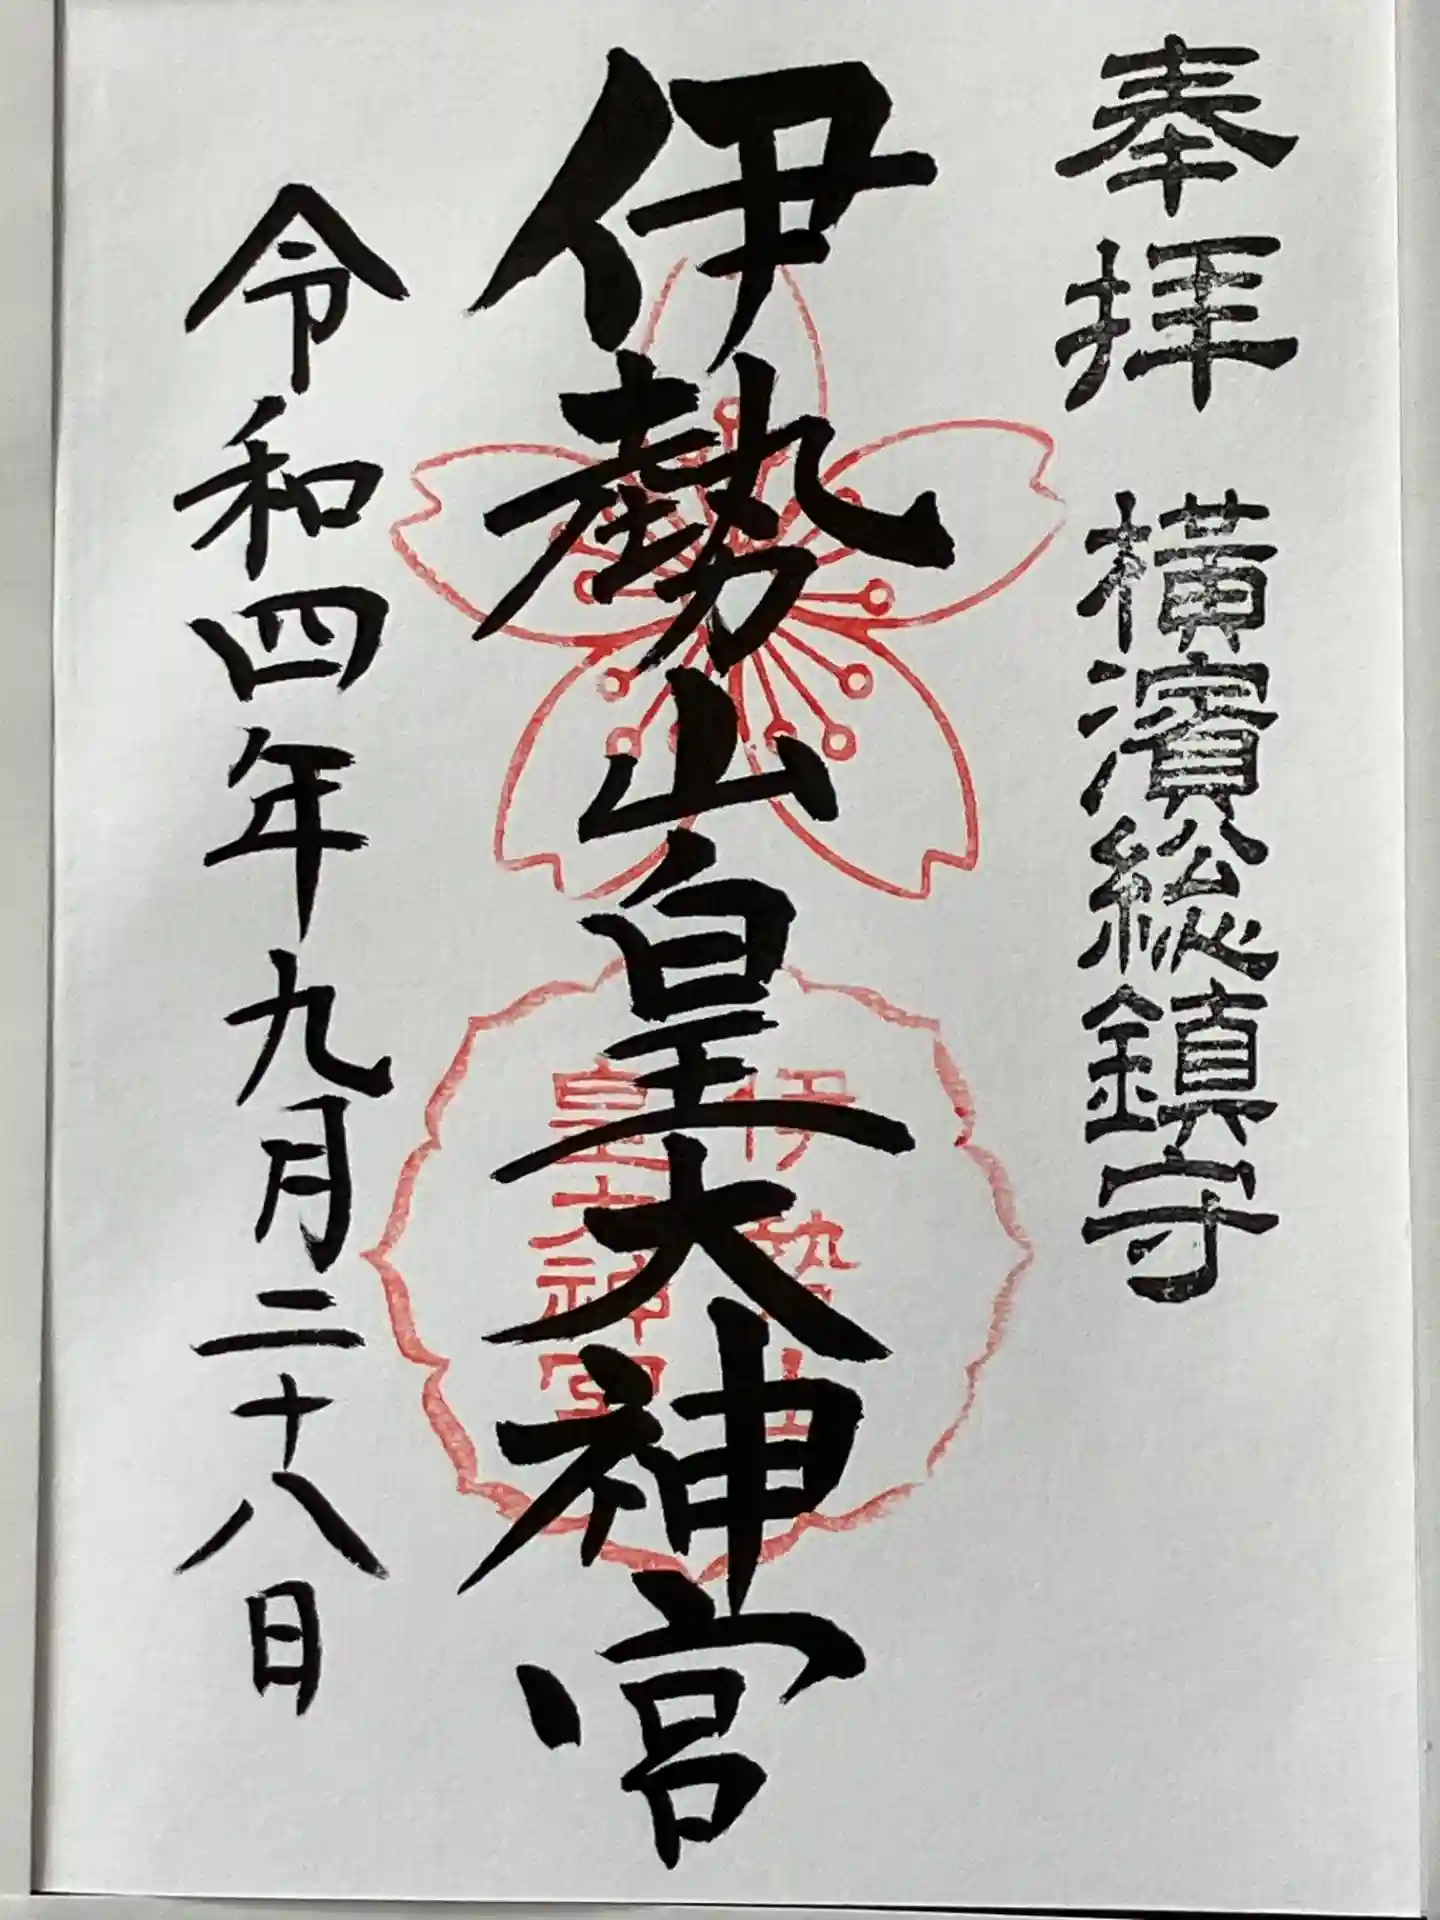 奉拝
横濱総鎮守
伊勢山皇大神宮
伊勢山
皇大神宮
令和四年九月二十八日